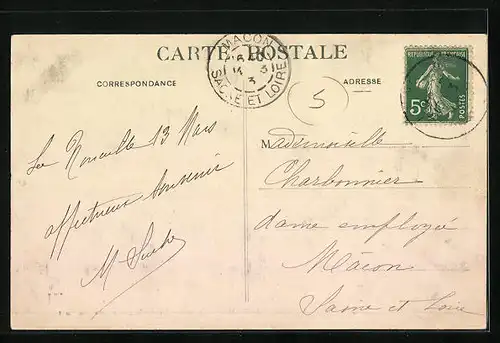 CARTE POSTALE
MACON
SAONE ET LOIRE
RÉPUBLIQUE FRANÇAISE
5c
POSTES
CORRESPONDANCE
ADRESSE
5
La 13 Mars
affectueux souvenir
M
Mademoiselle
Charbonnier
dame employée
Mâcon
Saone et Loire